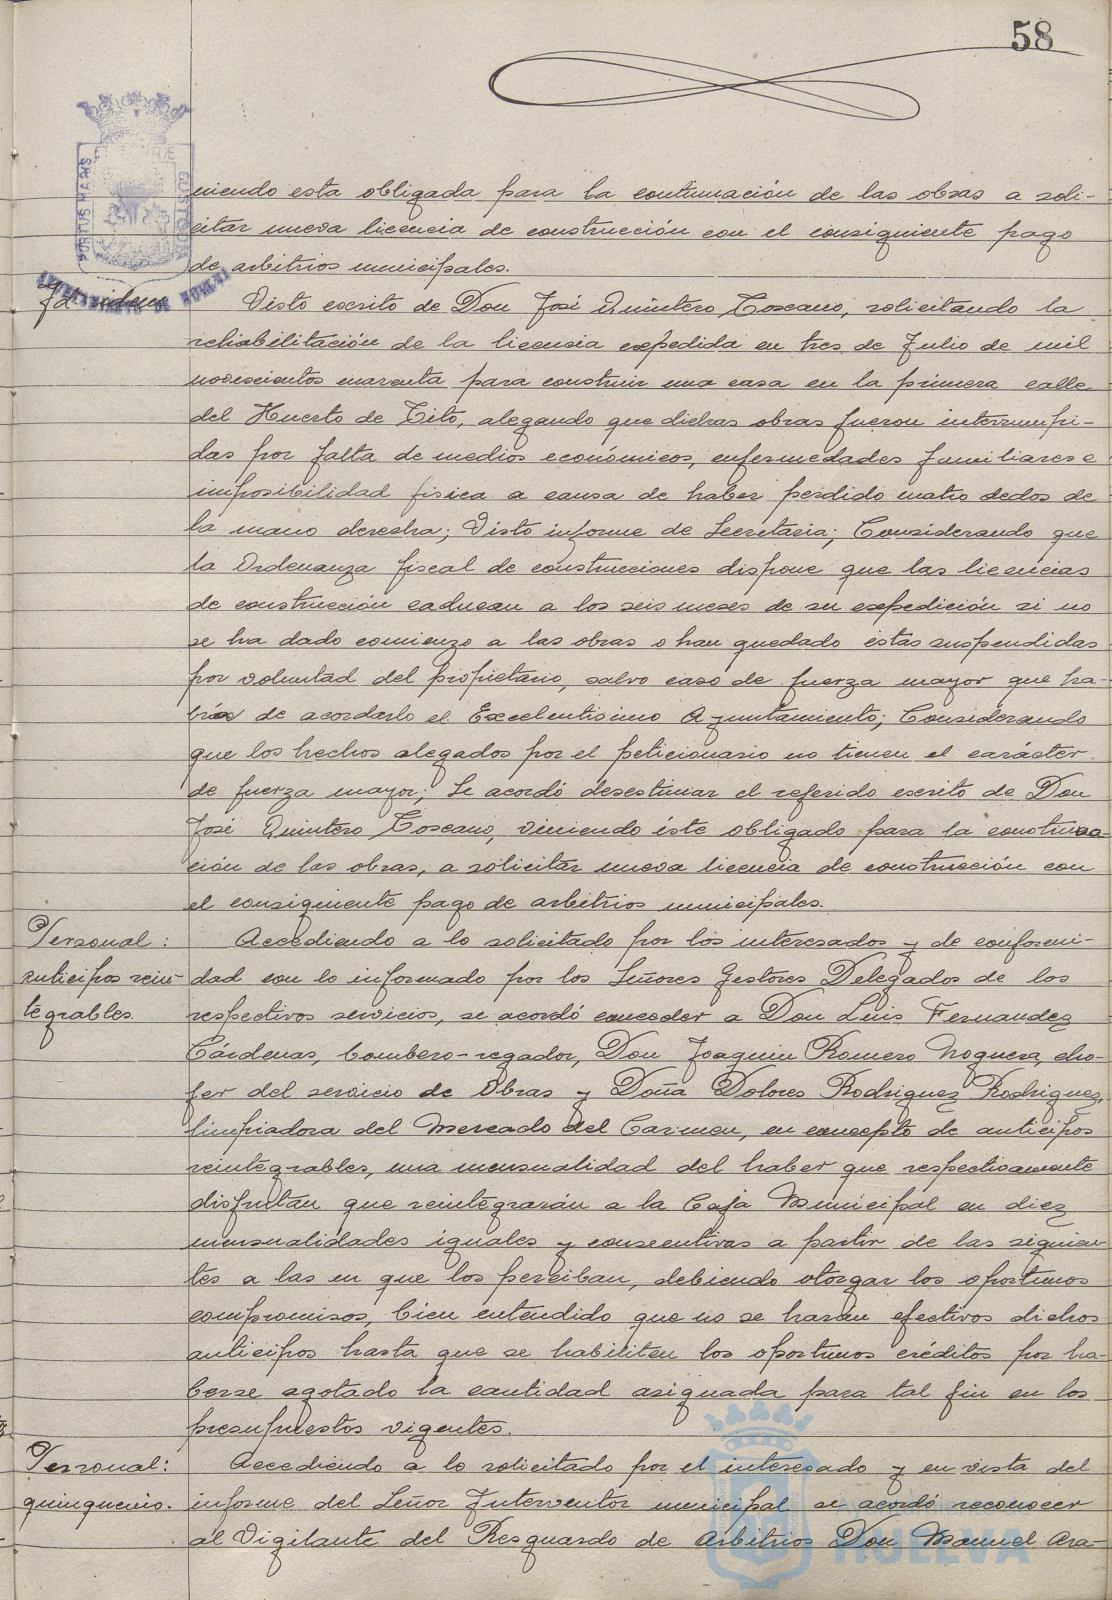 58
PORTUS MARIS
CUSTODIA
AYUNTAMIENTO DE HUELVA
niendo esta obligada para la continuación de las obras a soli-
citar nueva licencia de construcción con el consiguiente pago
de arbitrios municipales.
Id idem
Visto escrito de Don José Quintero Toscano, solicitando la
rehabilitación de la licencia expedida en tres de Julio de mil
novescientos cuarenta para construir una casa en la primera calle
del Huerto de Tito, alegando que dichas obras fueron interrumpi-
das por falta de medios económicos, enfermedades familiares e
imposibilidad fisica a causa de haber perdido cuatro dedos de
la mano derecha; Visto informe de Secretaria; Considerando que
la Ordenanza fiscal de construcciones dispone que las licencias
de construcción caducan a los seis meses de su expedición si no
se ha dado comienzo a las obras o han quedado éstas suspendidas
por voluntad del propietario, salvo caso de fuerza mayor que ha-
bria de acordarlo el Excelentisimo Ayuntamiento; Considerando
que los hechos alegados por el peticionario no tienen el carácter
de fuerza mayor; Se acordó desestimar el referido escrito de Don
José Quintero Toscano, viniendo éste obligado para la continua-
ción de las obras, a solicitar nueva licencia de construcción con
el consiguiente pago de arbitrios municipales.
Personal:
anticipos rein-
tegrables.
Accediendo a lo solicitado por los interesados y de conformi-
dad con lo informado por los Señores Gestores Delegados de los
respectivos servicios, se acordó conceder a Don Luis Fernandez
Cárdenas, bombero-regador, Don Joaquin Romero Noguera, cho-
fer del servicio de Obras y Doña Dolores Rodriguez Rodriguez,
limpiadora del Mercado del Carmen, en concepto de anticipos
reintegrables, una mensualidad del haber que respectivamente
disfrutan que reintegrarán a la Caja Municipal en diez
mensualidades iguales y consecutivas a partir de las siguien-
tes a las en que los perciban, debiendo otorgar los oportunos
compromisos, bien entendido que no se harán efectivos dichos
anticipos hasta que se habiliten los oportunos créditos por ha-
berse agotado la cantidad asignada para tal fin en los
presupuestos vigentes.
Personal:
quinquenio.
Accediendo a lo solicitado por el interesado y en vista del
informe del Señor Interventor municipal se acordó reconocer
al Vigilante del Resguardo de Arbitrios Don Manuel Ara-
Ayuntamiento de
HUELVA